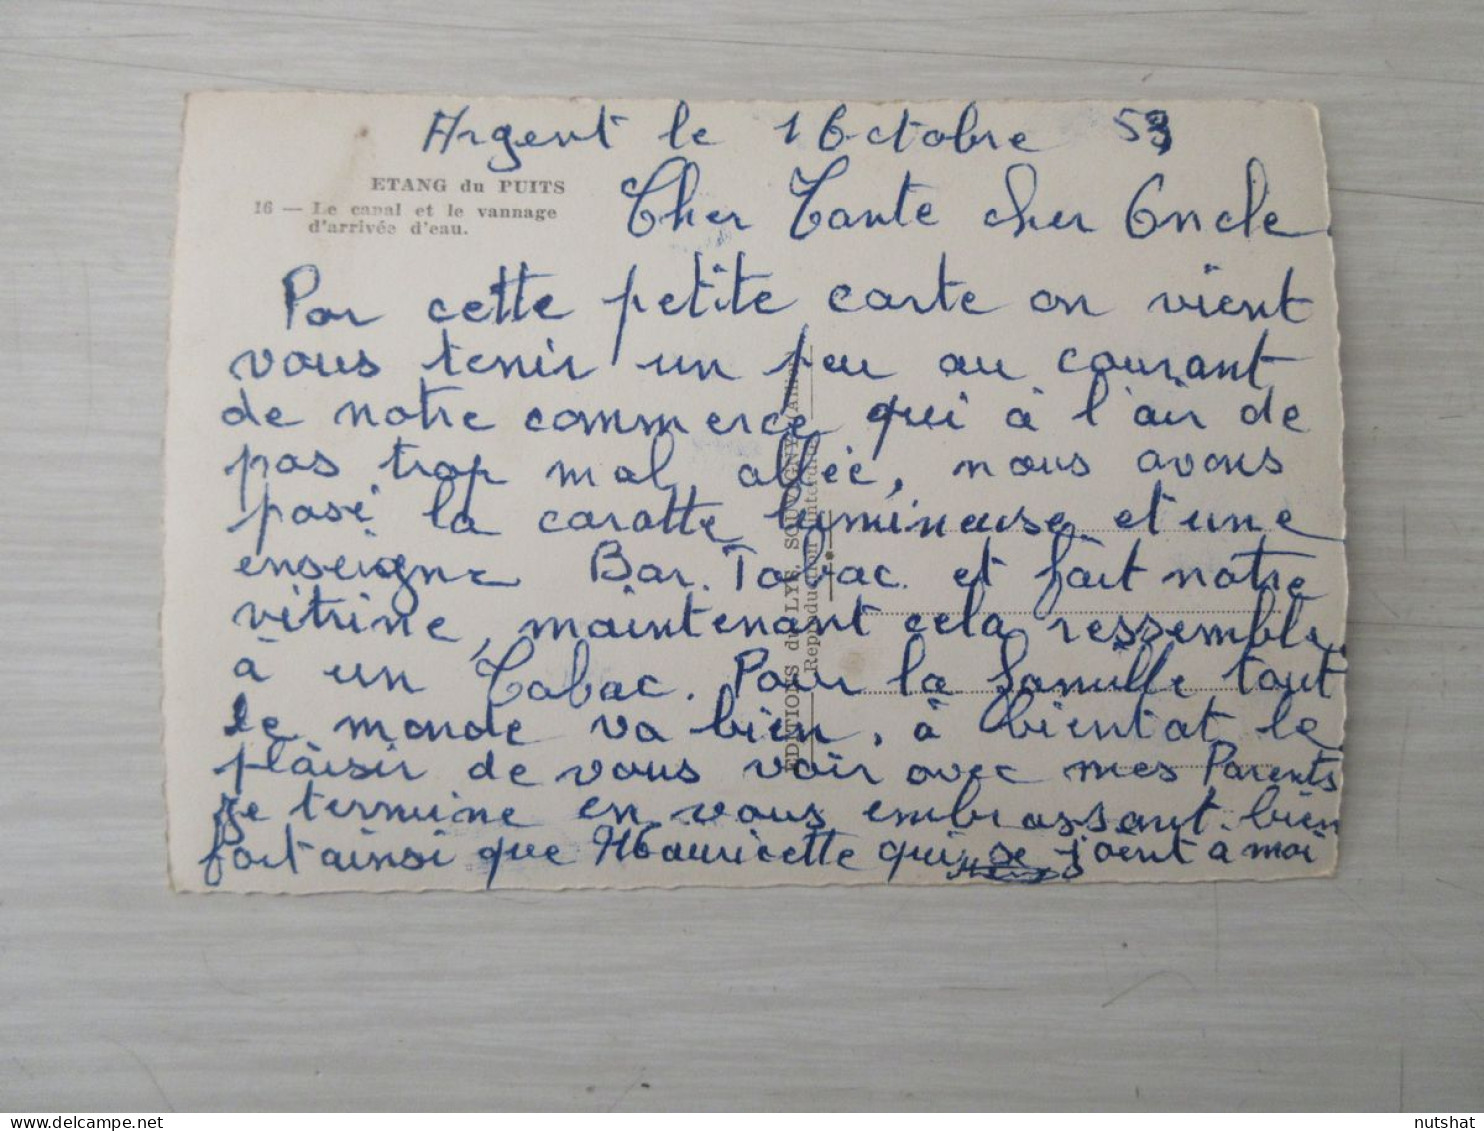 Argent le 1 Octobre 53
ETANG du PUITS
16 — Le canal et le vannage
d'arrivée d'eau.
Cher Tante cher Oncle
Par cette petite carte on vient
vous tenir un peu au courant
de notre commerce qui à l'air de
pas trop mal allée, nous avons
posé la carotte lumineuse et une
enseigne Bar. Tabac. et fait notre
vitrine, maintenant cela ressemble
à un Tabac. Pour la famille, tout
le monde va bien, à bientot le
plaisir de vous voir avec mes Parents
je termine en vous embrassant bien
fort ainsi que Mauricette qui se joent a moi
EDITIONS du LYS, SOUVIGNY (Allier)
Reproduction interdite
nutshat